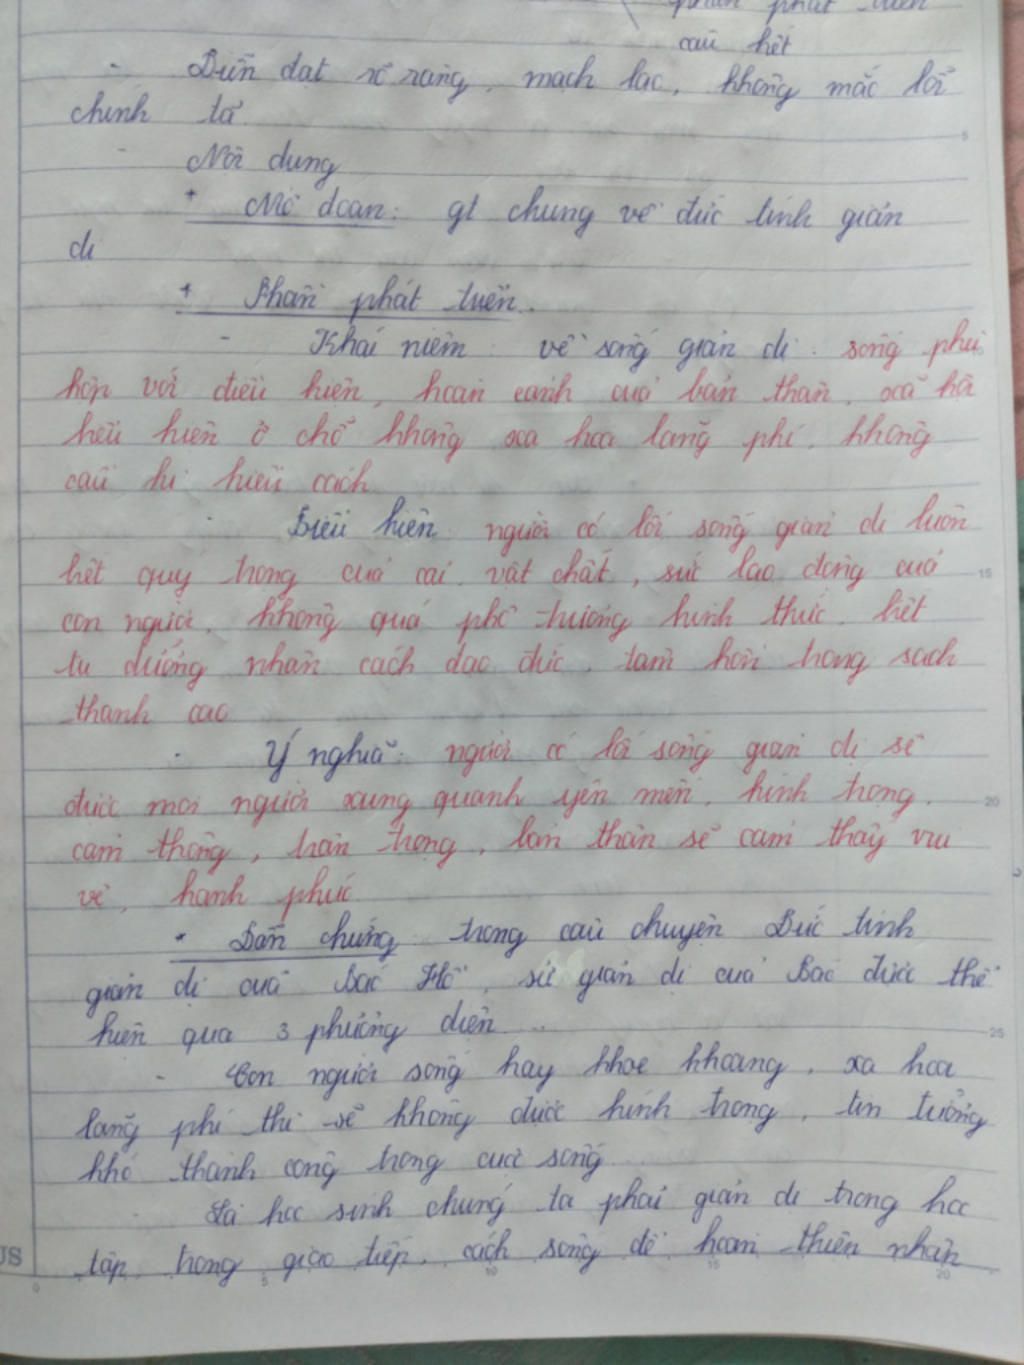 phần phát triển
câu kết
- Diễn đạt rõ ràng, mạch lạc, không mắc lỗi
chính tả
- Nội dung
+ Mở đoạn: gt chung về đức tính giản
dị
+ Phần phát triển.
- Khái niệm: về sống giản dị: sống phù
hợp với điều kiện, hoàn cảnh của bản thân, xã hội
biểu hiện ở chỗ không xa hoa lãng phí, không
cầu kì kiểu cách
- Biểu hiện: người có lối sống giản dị luôn
biết quý trọng của cải, vật chất, sức lao động của
con người, không quá phô trương hình thức, biết
tu dưỡng nhân cách đạo đức, tâm hồn trong sạch
thanh cao
- Ý nghĩa: người có lối sống giản dị sẽ
được mọi người xung quanh yên mến, kính trọng,
cảm thông, trân trọng, bản thân sẽ cảm thấy vui
vẻ, hạnh phúc
- Dẫn chứng: trong câu chuyện Đức tính
giản dị của Bác Hồ, sự giản dị của Bác được thể
hiện qua 3 phương diện...
- Con người sống hay khoe khoang, xa hoa
lãng phí thì sẽ không được kính trọng, tin tưởng
khó thành công trong cuộc sống
- Là học sinh chúng ta phải giản dị trong học
tập, trong giao tiếp, cách sống để hoàn thiện nhân